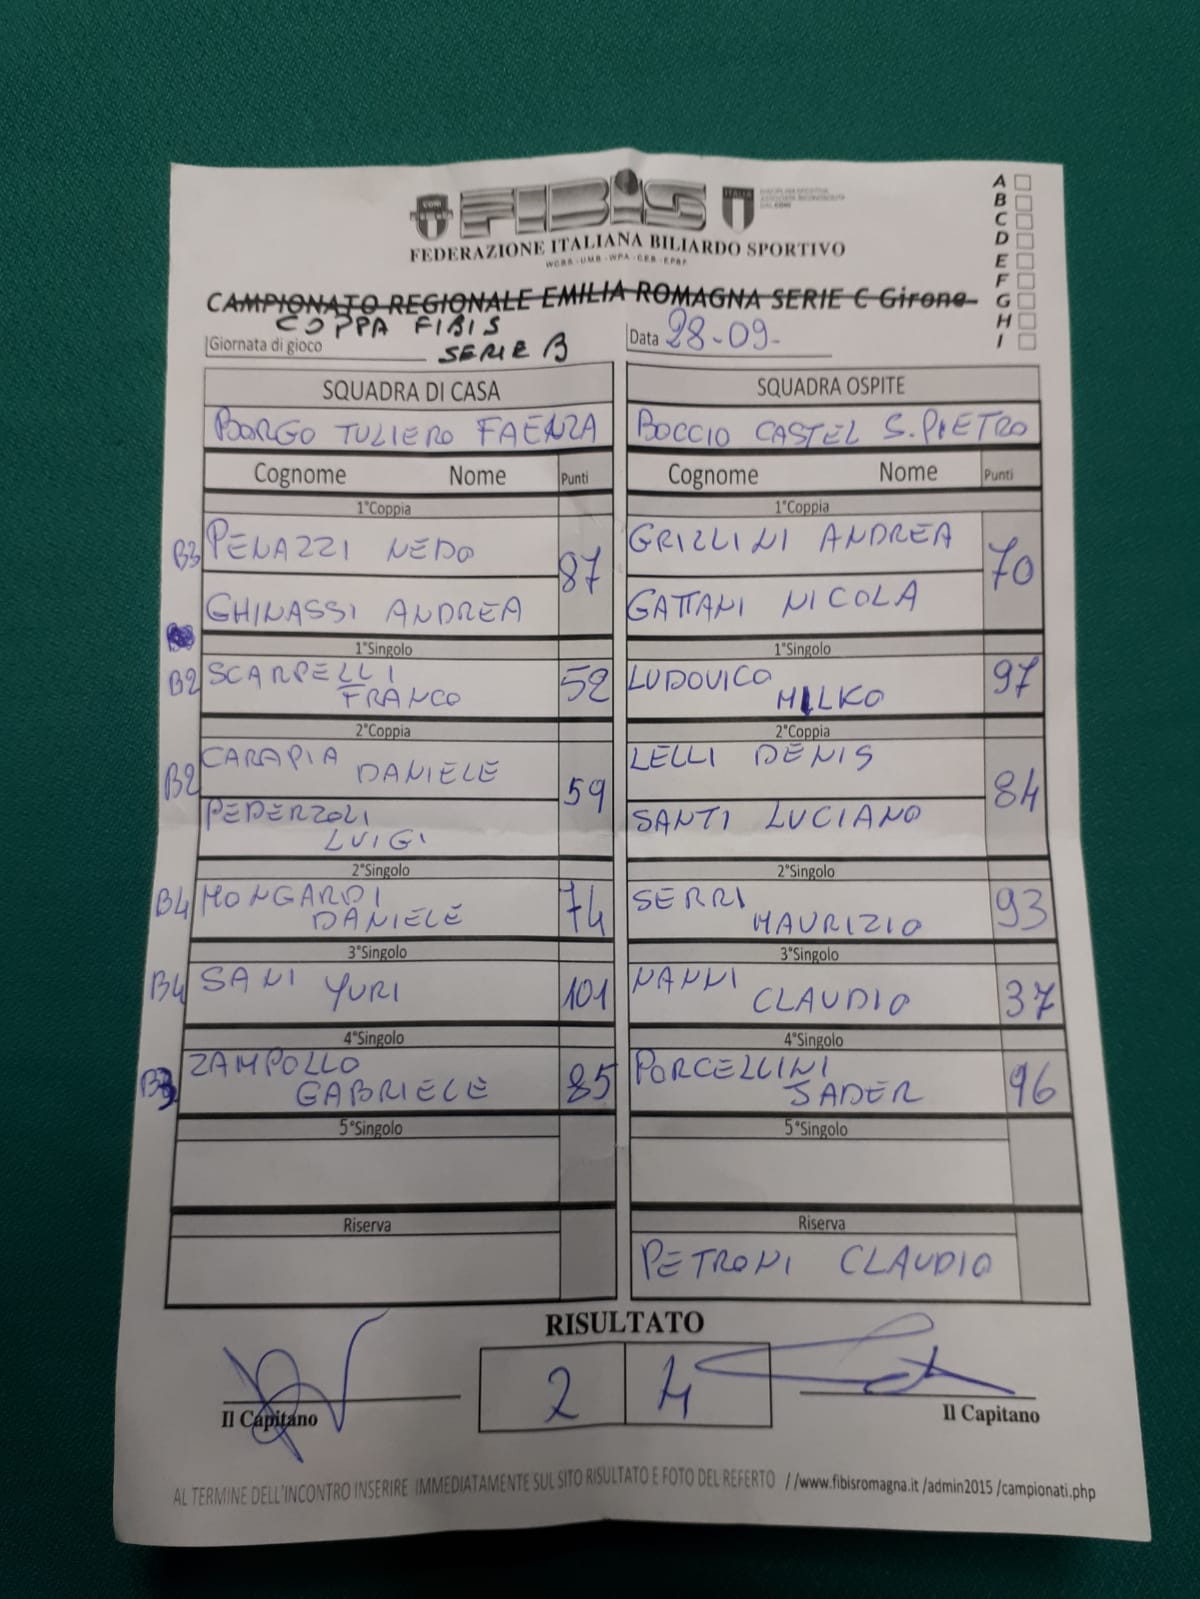 FIBIS
CONI
ITALIA
FEDERAZIONE ITALIANA BILIARDO SPORTIVO
WCBS - UMB - WPA - CEB - EPBF
A
B
C
D
E
F
G
H
I
CAMPIONATO REGIONALE EMILIA ROMAGNA SERIE C Girone
COPPA FIBIS
SERIE B
Giornata di gioco
Data 28-09-
SQUADRA DI CASA SQUADRA OSPITE
BORGO TULIERO FAENZA BOCCIO CASTEL S.PIETRO
Cognome Nome Punti Cognome Nome Punti
1°Coppia 1°Coppia
B3 PENAZZI NEDO 87 GRILLINI ANDREA 70
GHINASSI ANDREA GATTANI NICOLA
1°Singolo 1°Singolo
B2 SCARPELLI 52 LUDOVICO 97
FRANCO MILKO
2°Coppia 2°Coppia
B2 CARAPIA DANIELE 59 LELLI DENIS 84
PEDERZOLI SANTI LUCIANO
LUIGI
2°Singolo 2°Singolo
B4 MONGARDI 74 SERRI 93
DANIELE MAURIZIO
3°Singolo 3°Singolo
B4 SANI YURI 101 NANNI 37
CLAUDIO
4°Singolo 4°Singolo
B3 ZAMPOLLO 85 PORCELLINI 96
GABRIELE SADER
5°Singolo 5°Singolo
Riserva Riserva
PETRONI CLAUDIO
RISULTATO
2 4
Il Capitano Il Capitano
AL TERMINE DELL'INCONTRO INSERIRE IMMEDIATAMENTE SUL SITO RISULTATO E FOTO DEL REFERTO //www.fibisromagna.it /admin2015 /campionati.php